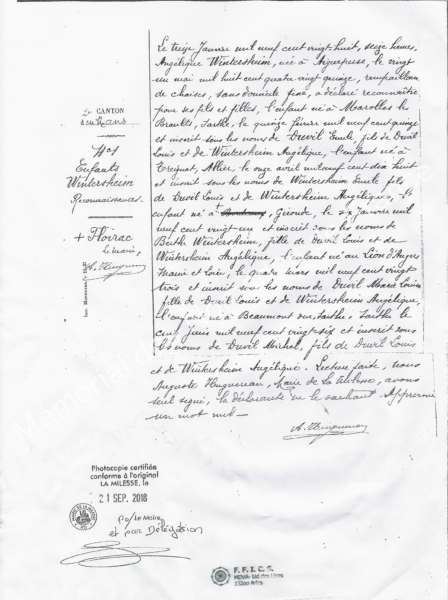 Le treize Janvier mil neuf cent vingt-huit, seize heures,
Angélique Wintersheim, née à Aigueperse, le vingt
un mai mil huit cent quatre vingt quinze, rempailleuse
de chaises, sans domicile fixe, a déclaré reconnaître
pour ses fils et filles, l'enfant né à Marolles les
Braults, Sarthe, le quinze février mil neuf cent quinze
et inscrit sous les noms de Duvil Emile, fils de Duvil
Louis et de Wintersheim Angélique, l'enfant né à
Treignat, Allier, le onze avril mil neuf cent dix huit
et inscrit sous les noms de Wintersheim Emile fils
de Duvil Louis et de Wintersheim Angélique,
enfant né à Gironde, le six Janvier mil
neuf cent vingt-un et inscrit sous les noms de
Berthe Wintersheim, fille de Duvil Louis et de
Wintersheim Angélique, l'enfant né au Lion d'Angers
Maine et Loire, le quatre mars mil neuf cent vingt
trois et inscrit sous les noms de Duvil Marie Louise
fille de Duvil Louis et de Wintersheim Angélique,
l'enfant né à Beaumont sur Sarthe, Sarthe le
cinq Juin mil neuf cent vingt-six et inscrit sous
les noms de Duvil Michel, fils de Duvil Louis
et de Wintersheim Angélique. Lecture faite, nous
Auguste Huguenau, Maire de la Milesse, avons
seul signé, la déclarante ne le sachant. Approuvé
un mot nul
CANTON
du Mans
Enfants
Wintersheim
Reconnaissances.
+ Floirac
Le maire,
Photocopie certifiée
conforme à l'original
LA MILESSE, le
21 SEP. 2018
po/Le Maire
et par Délégation
F.F.I.C.S.
13200 Arles